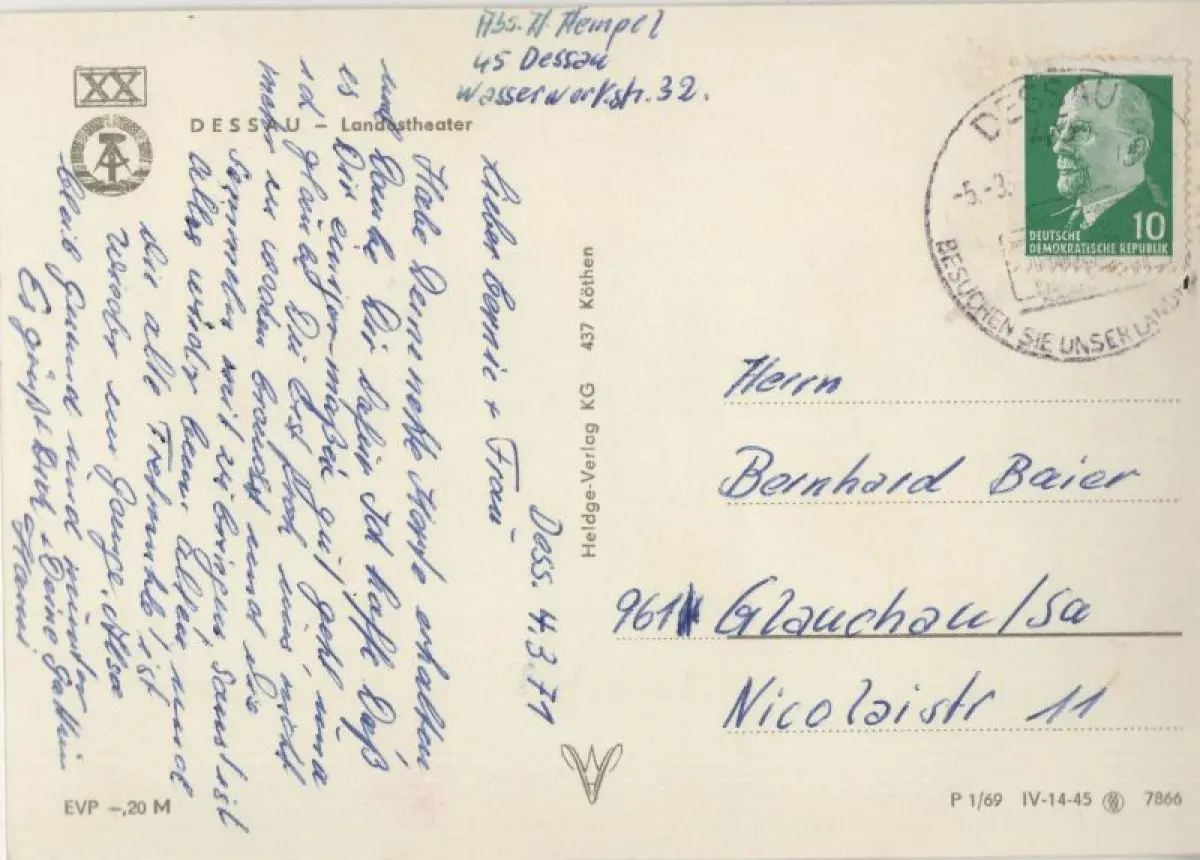 Abs. H. Hempel
45 Dessau
Wasserwerkstr. 32.
XX
DESSAU – Landestheater
Dess. 4.3.71
Lieber Bernie + Frau
Habe Deine nette Karte erhalten
und Danke Dir dafür Ich hoffe Daß
es Dir einigermaßen gut geht, und
ich glaube Du bist froh uns nicht
mehr zu
Sammeln mit zu bringen, Sonst ist
alles wieder beim Alten, und
die alte Tretmühle ist
wieder im Gange. Also
bleib Gesund und munter
Es grüßt Dich + Deine Gattin
Hanni
EVP –,20 M
Heldge-Verlag KG 437 Köthen
DESSAU
-5.-3.
BESUCHEN SIE UNSER LAND
10
DEUTSCHE
DEMOKRATISCHE REPUBLIK
Herrn
Bernhard Baier
961 Glauchau/Sa
Nicolaistr 11
P 1/69 IV-14-45 7866